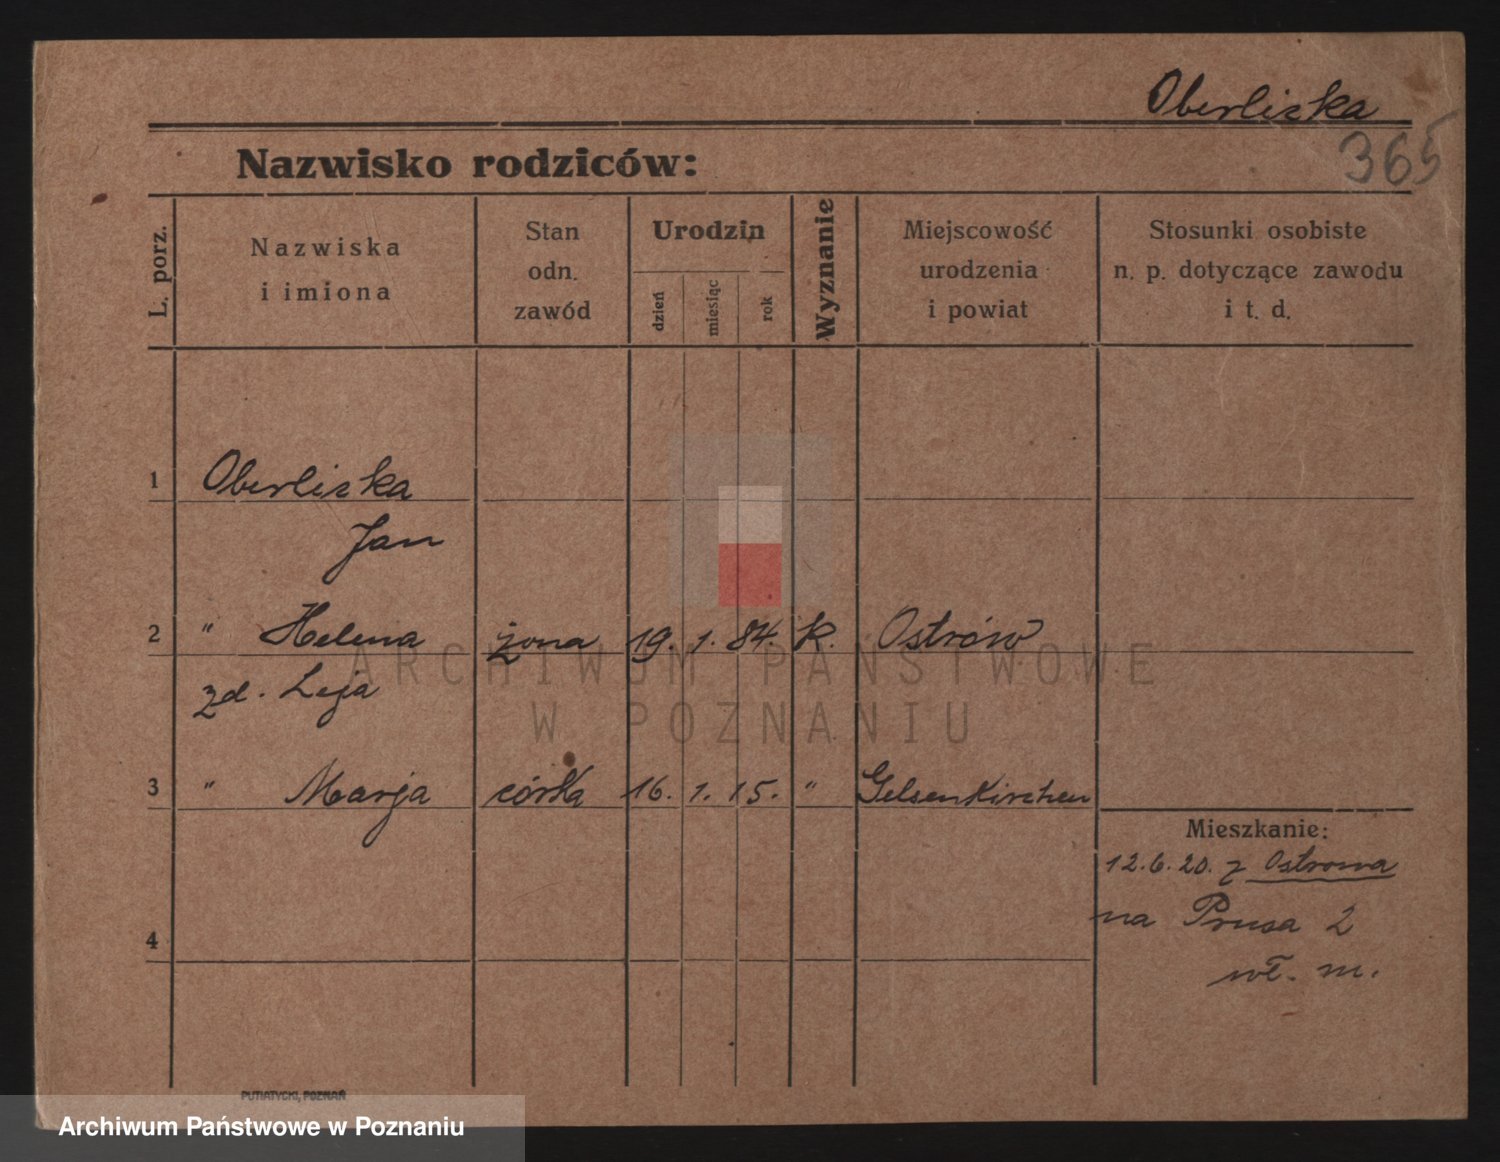 Oberliska
365
Nazwisko rodziców:
L. porz.
Nazwiska
i imiona
Stan
odn.
zawód
Urodzin
dzień
miesiąc
rok
Wyznanie
Miejscowość
urodzenia
i powiat
Stosunki osobiste
n. p. dotyczące zawodu
i t. d.
1 Oberliska
Jan
2 " Helena żona 19. 1. 84. k. Ostrów
zd. Leja
3 " Marja córka 16. 1. 15. " Gelsenkirchen
Mieszkanie:
12.6.20. z Ostrowa
na Prusa 2
wł. m.
4
ARCHIWUM PAŃSTWOWE
W POZNANIU
PUTIATYCKI, POZNAŃ
Archiwum Państwowe w Poznaniu